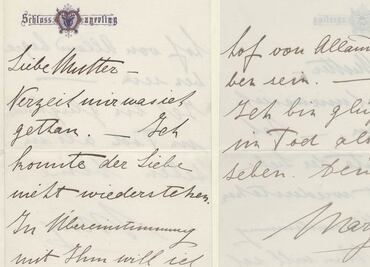 Schloss Mayerling
Liebe Mutter –
Verzeit mir was ich
gethan. – Ich
konnte der Liebe
nicht wiederstehen.
In Übereinstimmung
mit Ihm will ich
hof von Alland
ben sein. –
Ich bin glü
im Tod als
Leben. Dein
Mary